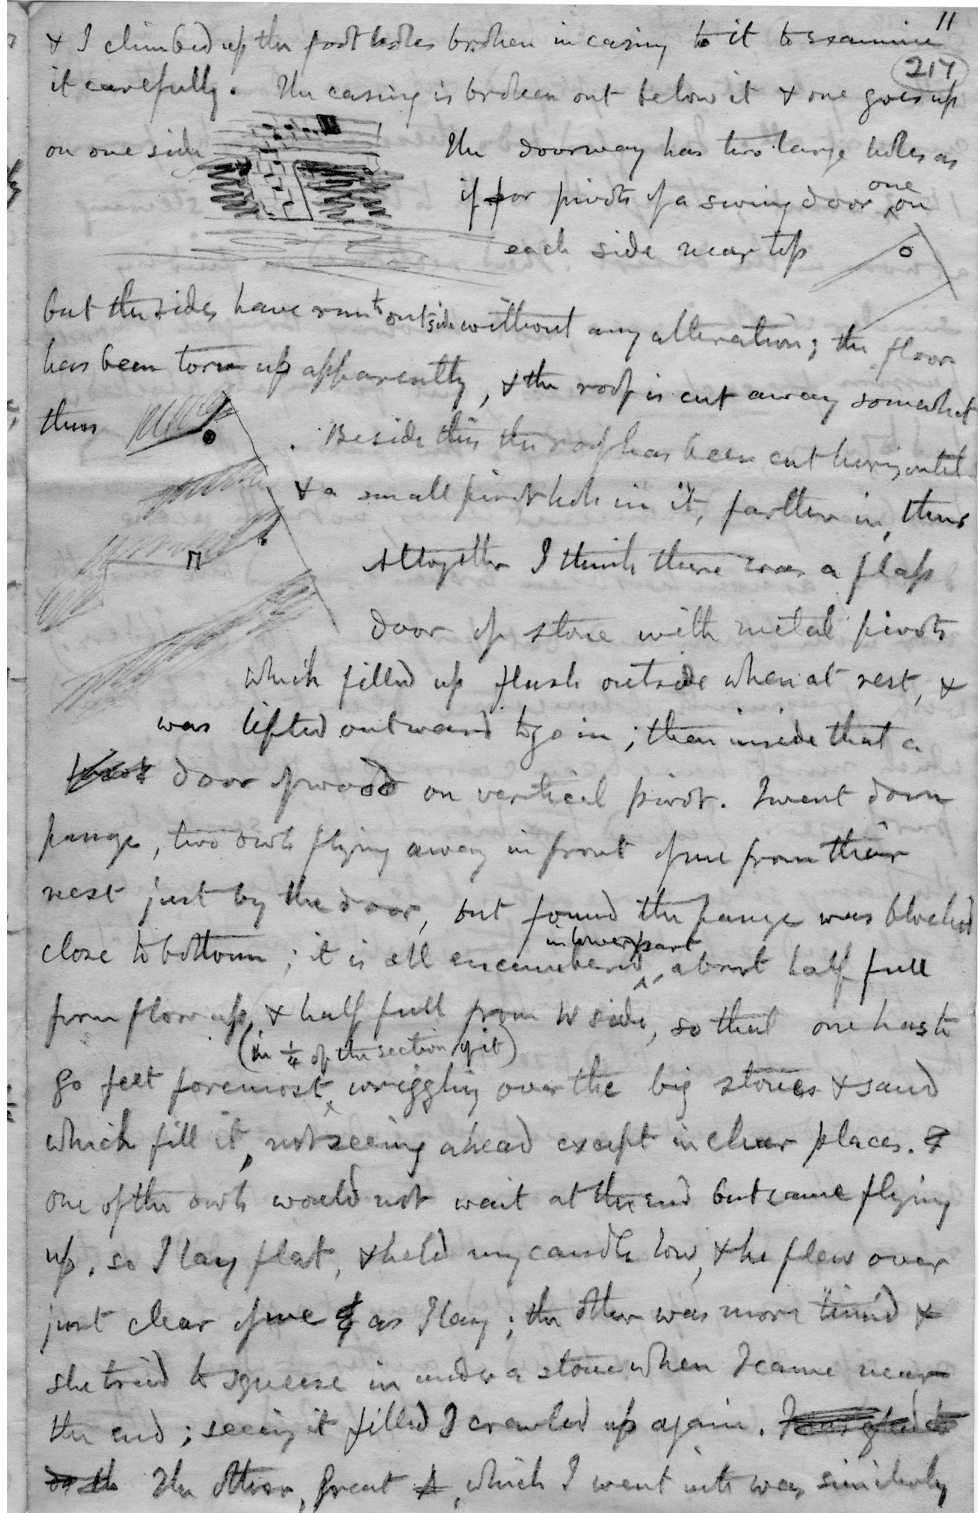 11
217
& I climbed up the foot holes broken in casing to it to examine
it carefully. The casing is broken out below it & one goes up
on one side The doorway has two large holes as
if for pivots of a swing door one on
each side near top
but the sides have run to outside without any alteration; the floor
has been torn up apparently, & the roof is cut away somewhat
thus . Beside this the roof has been cut horizontal
& a small pivot hole in it, farther in, thus
Altogether I think there was a flap
door of stone with metal pivots
which filled up flush outside when at rest, &
was lifted outward to go in; then inside that a
door of wood on vertical pivot. I went down
passage, two owls flying away in front of me from their
nest just by the door, but found the passage was blocked
close to bottom; it is all encumbered in lower part, about half full
from floor up, & half full from W side, so that one has to
(in ¼ of the section of it)
go feet foremost, wriggling over the big stones & sand
which fill it, not seeing ahead except in clear places. &
one of the owls would not wait at the end but came flying
up, so I lay flat, & held my candle low, & he flew over
just clear of me as I lay; the other was more timid &
she tried to squeeze in under a stone when I came near
the end; seeing it filled I crawled up again. I was glad to
The other, great , which I went into was similarly